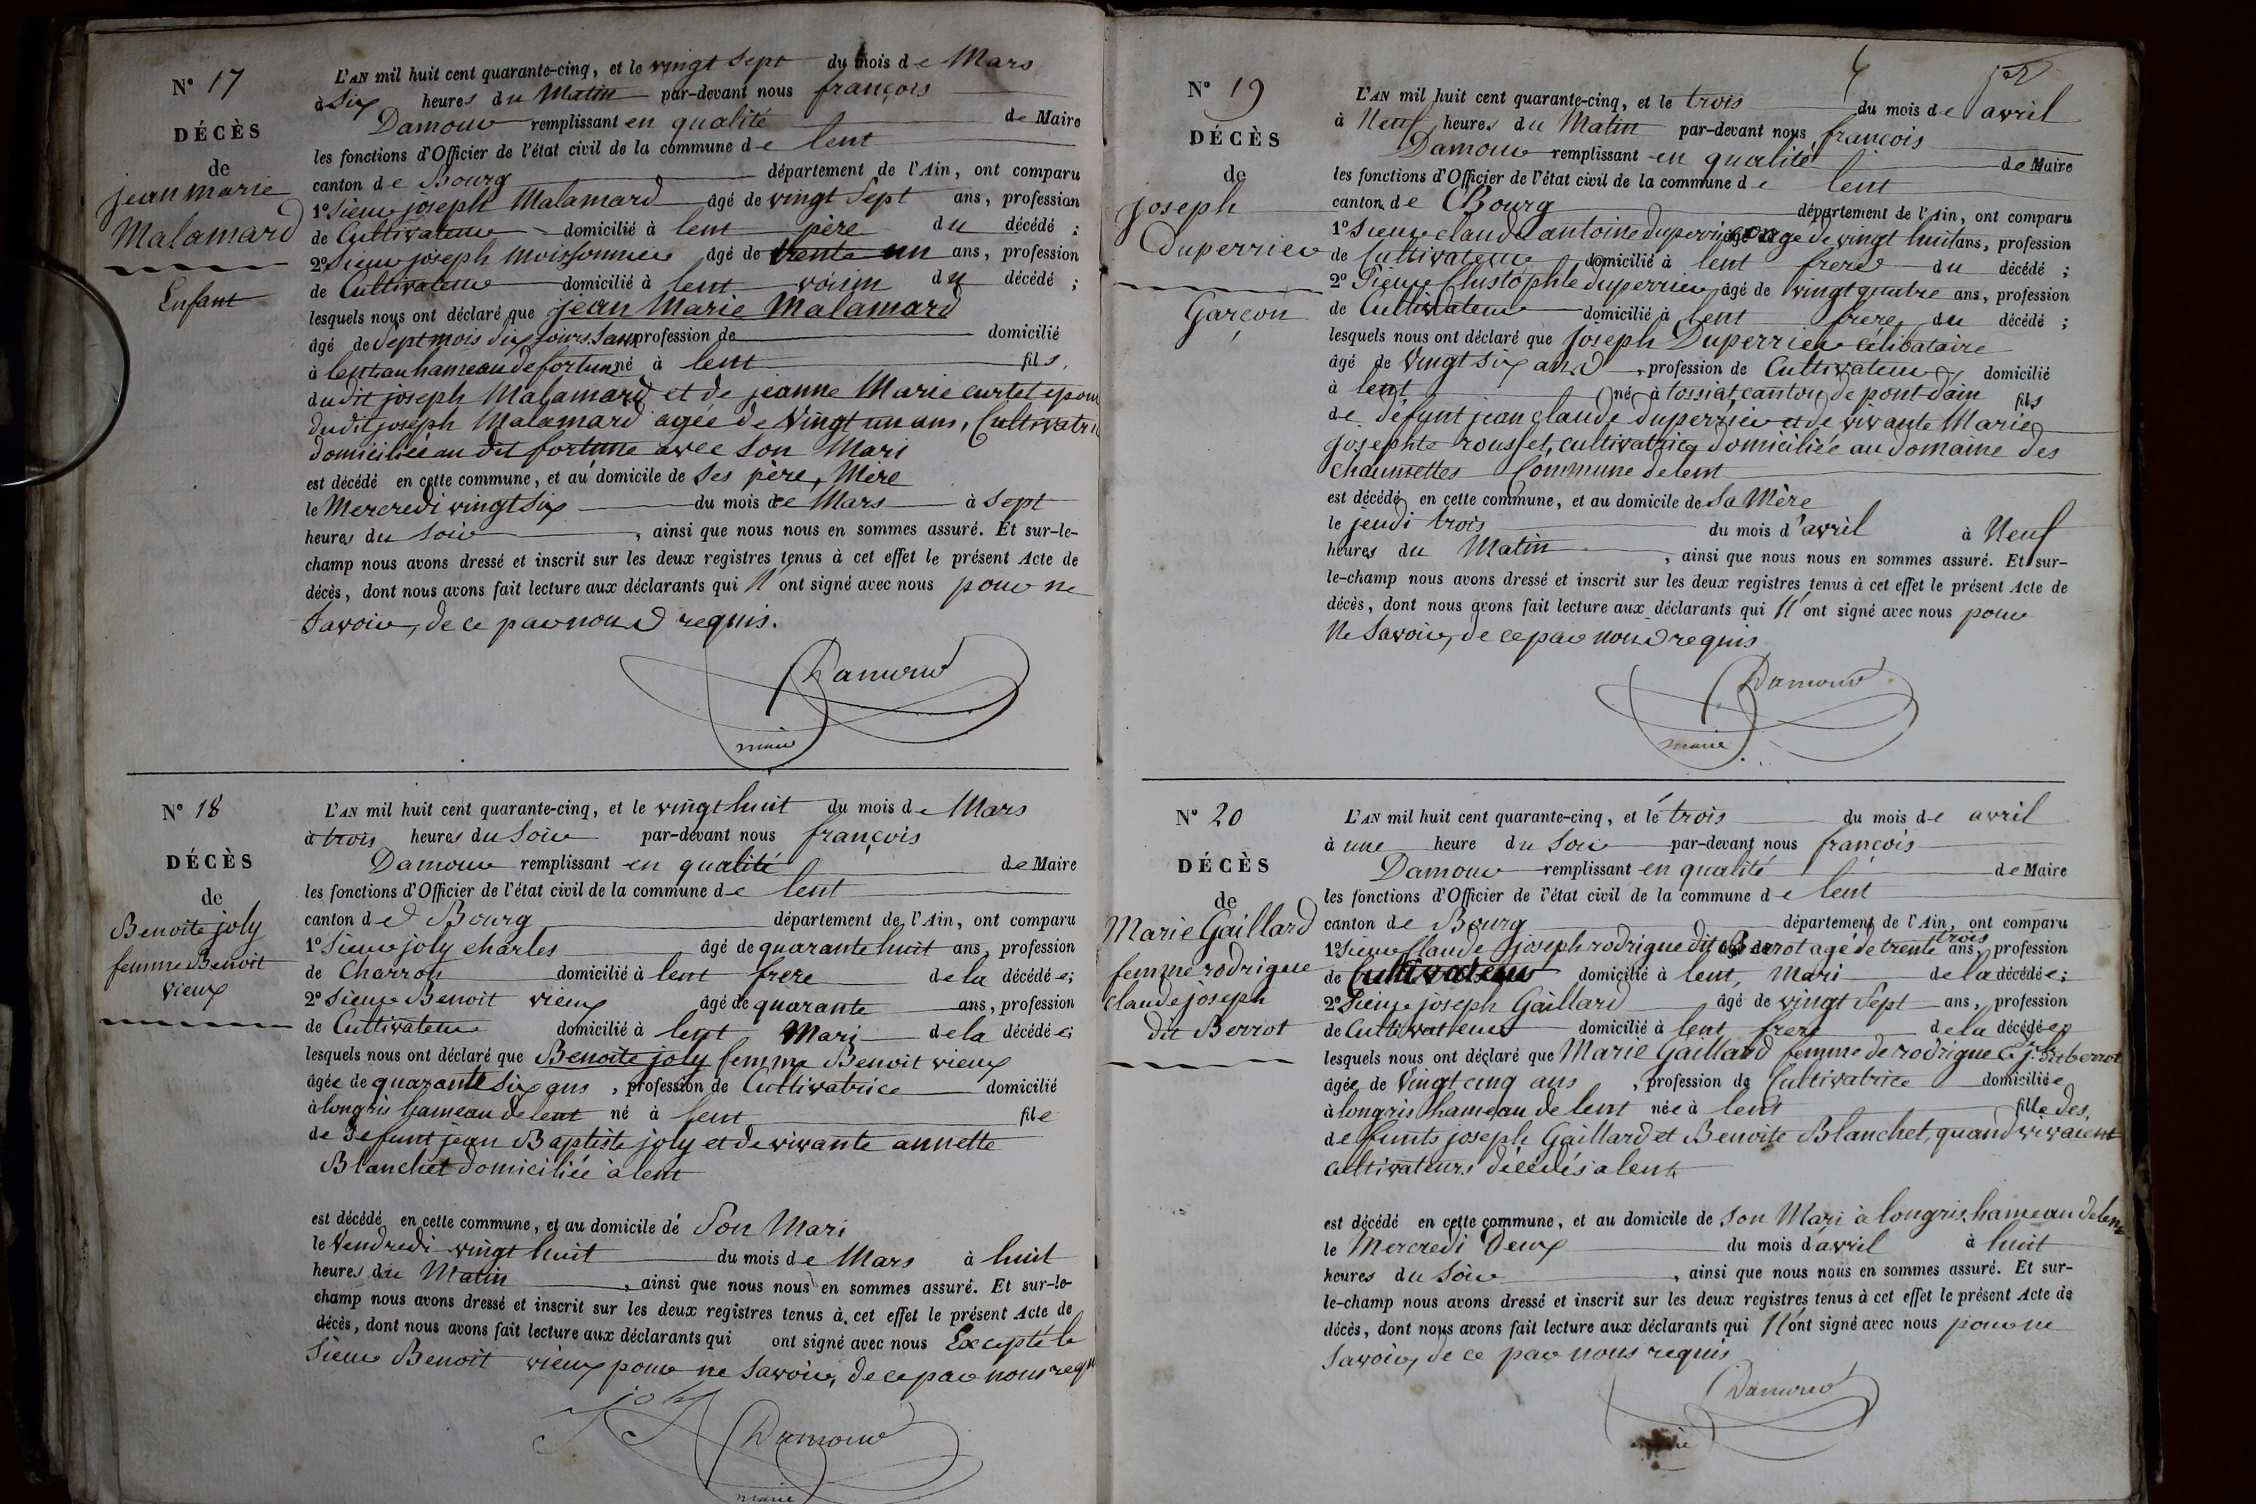 N° 17
DÉCÈS
de
jean marie
Malamard
Enfant
L'AN mil huit cent quarante-cinq, et le vingt sept du mois de Mars
à Six heures du Matin par-devant nous françois
Damour remplissant en qualité de Maire
les fonctions d'Officier de l'état civil de la commune de lent
canton de Bourg département de l'Ain, ont comparu
1° Sieur joseph Malamard âgé de vingt Sept ans, profession
de Cultivateur domicilié à lent père du décédé ;
2° Sieur joseph Moissonnier âgé de trente un ans, profession
de Cultivateur domicilié à lent voisin du décédé ;
lesquels nous ont déclaré que jean Marie Malamard
âgé de Sept mois dix jours Sans profession de domicilié
à lent au hameau de fortune né à lent fils,
du dit joseph Malamard et de jeanne Marie curtet epouse
du dit joseph Malamard agée de Vingt un ans, Cultivatrice
domiciliée au dit fortune avec Son Mari
est décédé en cette commune, et au domicile de Ses père, Mère
le Mercredi vingt Six du mois de Mars à Sept
heures du Soir, ainsi que nous nous en sommes assuré. Et sur-le-
champ nous avons dressé et inscrit sur les deux registres tenus à cet effet le présent Acte de
décès, dont nous avons fait lecture aux déclarants qui N'ont signé avec nous pour ne
Savoir, de ce par nous requis.
Damour
maire
N° 18
DÉCÈS
de
Benoite joly
femme Benoit
vieux
L'AN mil huit cent quarante-cinq, et le vingt huit du mois de Mars
à trois heures du Soir par-devant nous françois
Damour remplissant en qualité de Maire
les fonctions d'Officier de l'état civil de la commune de lent
canton de Bourg département de l'Ain, ont comparu
1° Sieur joly charles âgé de quarante huit ans, profession
de Charron domicilié à lent frere de la décédée;
2° Sieur Benoit vieux âgé de quarante ans, profession
de Cultivateur domicilié à lent Mari de la décédée;
lesquels nous ont déclaré que Benoite joly femme Benoit vieux
âgée de quarante Six ans, profession de Cultivatrice domicilié
à longris hameau de lent né à lent file
de defunt jean Baptiste joly et de vivante annette
Blanchet domiciliée à lent
est décédé en cette commune, et au domicile de Son Mari
le Vendredi vingt huit du mois de Mars à huit
heures du Matin, ainsi que nous nous en sommes assuré. Et sur-le-
champ nous avons dressé et inscrit sur les deux registres tenus à cet effet le présent Acte de
décès, dont nous avons fait lecture aux déclarants qui ont signé avec nous Excepté le
Sieur Benoit vieux pour ne Savoir, de ce par nous requis
joly
Damour
maire
N° 19
DÉCÈS
de
joseph
duperrier
Garçon
L'AN mil huit cent quarante-cinq, et le trois du mois de avril
à Neuf heures du Matin par-devant nous françois
Damour remplissant en qualité de Maire
les fonctions d'Officier de l'état civil de la commune de lent
canton de Bourg département de l'Ain, ont comparu
1° Sieur claude antoine duperrier age de vingt huit ans, profession
de Cultivateur domicilié à lent frere du décédé ;
2° Sieur Christophle duperrier âgé de vingt quatre ans, profession
de Cultivateur domicilié à lent frere du décédé ;
lesquels nous ont déclaré que Joseph Duperrier célibataire
âgé de Vingt Six ans, profession de Cultivateur, domicilié
à lent né à tossiat, canton de pont-d'ain fils
de défunt jean claude duperrier et de vivante Marie
josephte rousset, cultivatrice domiciliée au domaine des
chaumettes Commune de lent
est décédé en cette commune, et au domicile de Sa Mère
le jeudi trois du mois d'avril à Neuf
heures du Matin, ainsi que nous nous en sommes assuré. Et sur-
le-champ nous avons dressé et inscrit sur les deux registres tenus à cet effet le présent Acte de
décès, dont nous avons fait lecture aux déclarants qui N'ont signé avec nous pour
Ne Savoir, de ce par nous requis
Damour
maire
N° 20
DÉCÈS
de
Marie Gaillard
femme rodrigue
claude joseph
dit Berrot
L'AN mil huit cent quarante-cinq, et le trois du mois de avril
à une heure du Soir par-devant nous françois
Damour remplissant en qualité de Maire
les fonctions d'Officier de l'état civil de la commune de lent
canton de Bourg département de l'Ain, ont comparu
1° Sieur Claude joseph rodrigue dit Berrot agé de trente trois ans, profession
de Cultivateur domicilié à lent, Mari de la décédée;
2° Sieur joseph Gaillard âgé de vingt Sept ans, profession
de Cultivateur domicilié à lent frere de la décédée
lesquels nous ont déclaré que Marie Gaillard femme de rodrigue C. j. dit berrot
âgée de Vingt cinq ans, profession de Cultivatrice domiciliée
à longris hameau de lent née à lent fille des
defunts joseph Gaillard et Benoite Blanchet, quand vivaient
cultivateurs décédés à lent
est décédé en cette commune, et au domicile de Son Mari à longris, hameau de lent
le Mercredi Deux du mois d'avril à huit
heures du Soir, ainsi que nous nous en sommes assuré. Et sur-
le-champ nous avons dressé et inscrit sur les deux registres tenus à cet effet le présent Acte de
décès, dont nous avons fait lecture aux déclarants qui N'ont signé avec nous pour ne
Savoir, de ce par nous requis
Damour